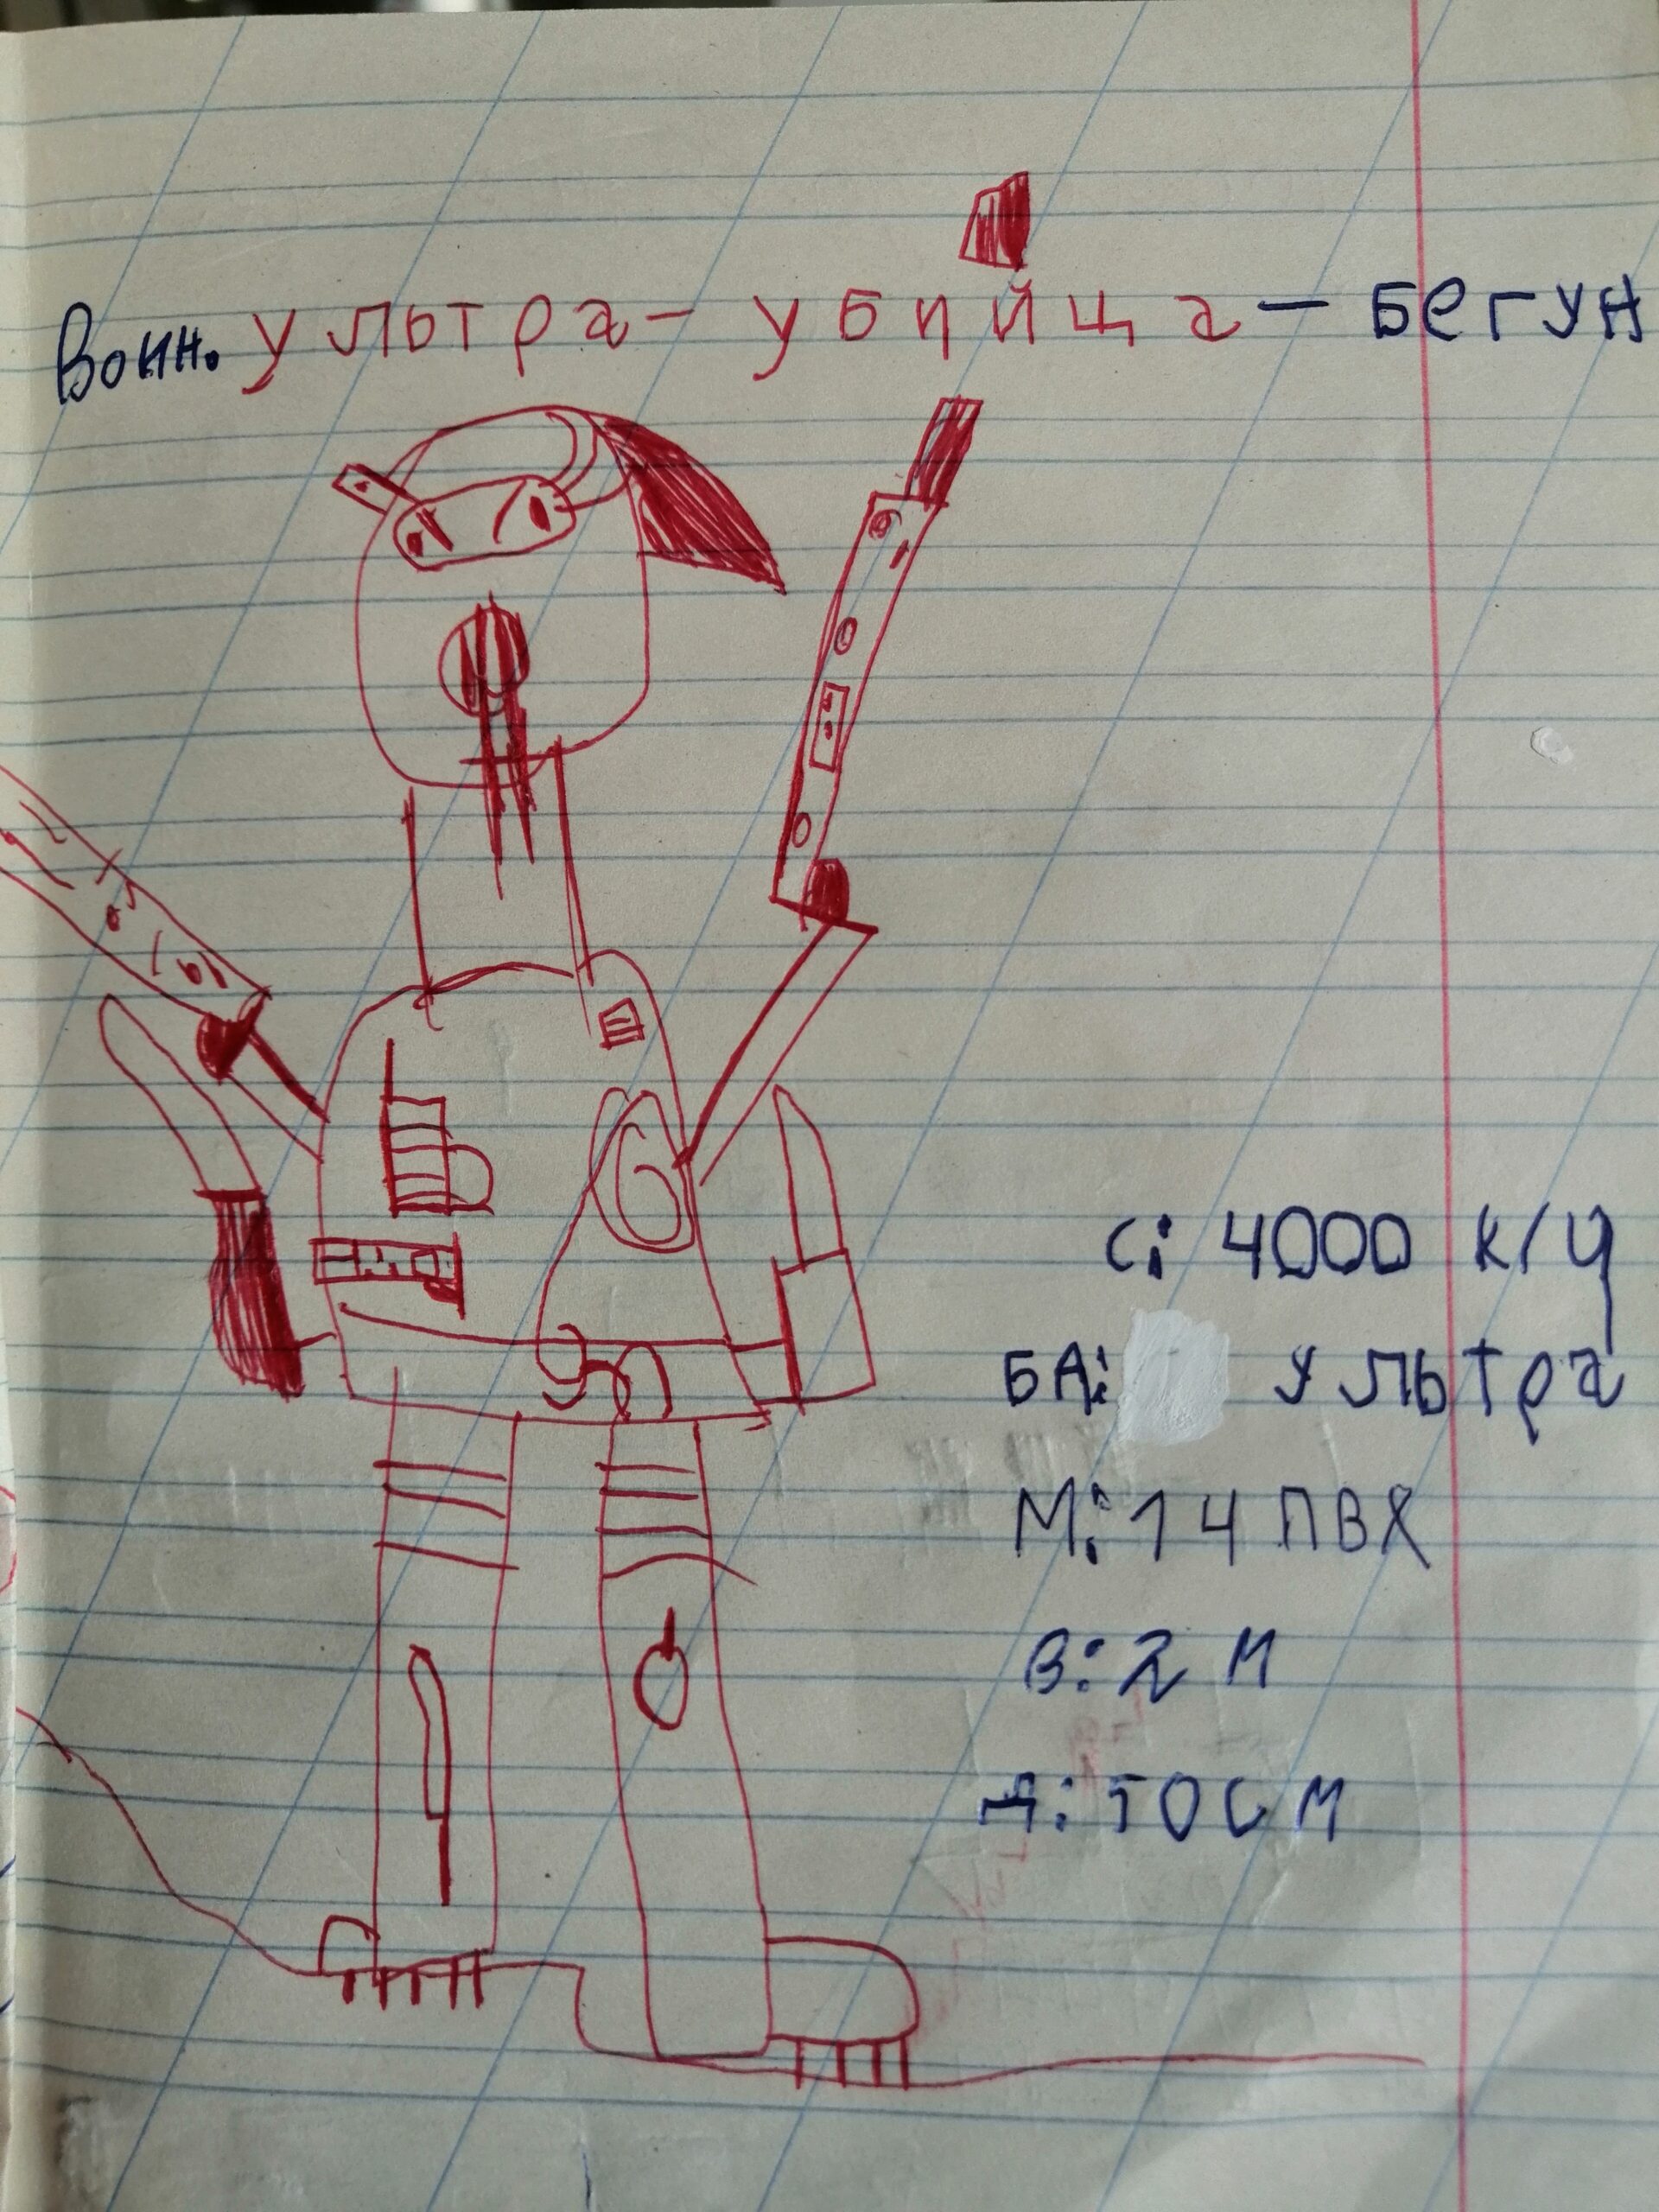 Воин. ультра-убийца-бегун
С: 4000 к/ч
БА: ультра
М: 14 ПВХ
В: 2 м
Д: 50 см